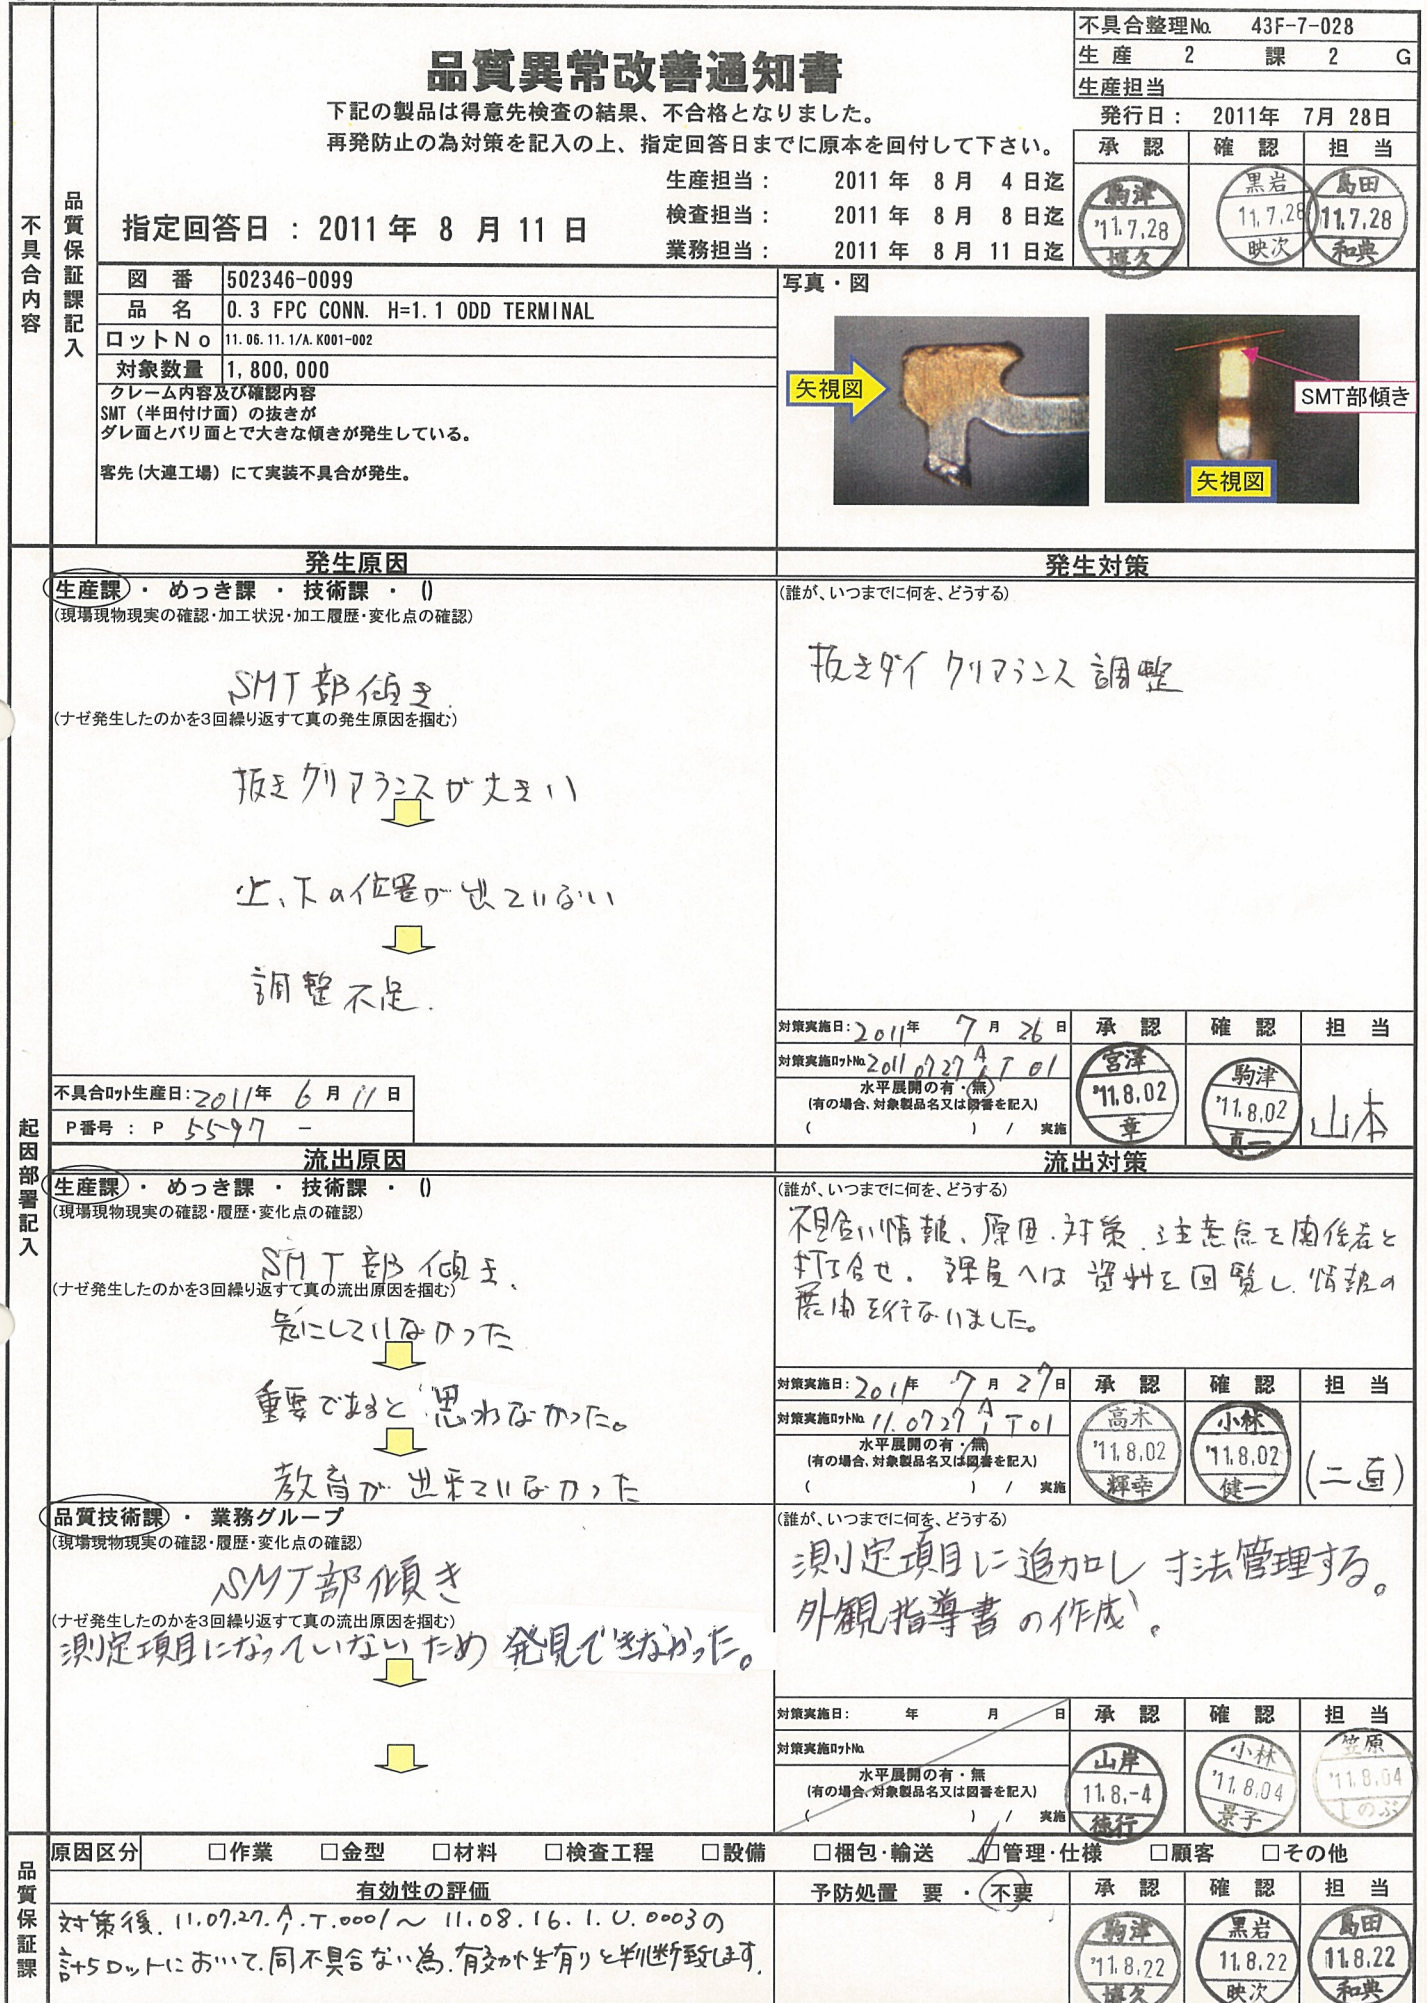 不具合整理No. 43F-7-028
生産 2 課 2 G
生産担当
発行日: 2011年 7月 28日
承認 確認 担当
駒津 '11.7.28 博久
黒岩 11.7.28 映次
島田 11.7.28 和典
品質異常改善通知書
下記の製品は得意先検査の結果、不合格となりました。
再発防止の為対策を記入の上、指定回答日までに原本を回付して下さい。
生産担当: 2011 年 8 月 4 日迄
検査担当: 2011 年 8 月 8 日迄
業務担当: 2011 年 8 月 11 日迄
指定回答日 : 2011 年 8 月 11 日
不具合内容
品質保証課記入
図番 502346-0099
品名 0.3 FPC CONN. H=1.1 ODD TERMINAL
ロットNo 11.06.11.1/A.K001-002
対象数量 1,800,000
クレーム内容及び確認内容
SMT(半田付け面)の抜きが
ダレ面とバリ面とで大きな傾きが発生している。
客先(大連工場)にて実装不具合が発生。
写真・図
矢視図
SMT部傾き
矢視図
起因部署記入
発生原因
生産課 ・ めっき課 ・ 技術課 ・ ()
(現場現物現実の確認・加工状況・加工履歴・変化点の確認)
SMT部傾き.
(ナゼ発生したのかを3回繰り返すて真の発生原因を掴む)
抜きクリアランスが大きい
上、下の位置が出ていない
調整不足.
不具合ロット生産日: 2011年 6月 11日
P番号 : P 5597 -
発生対策
(誰が、いつまでに何を、どうする)
抜きダイ クリアランス調整
対策実施日: 2011年 7月 26日
対策実施ロットNo. 20110727 A/1 T 01
水平展開の有・無
(有の場合、対象製品名又は図番を記入)
( ) / 実施
承認 確認 担当
宮澤 '11.8.02 章
駒津 '11.8.02 真一
山本
流出原因
生産課 ・ めっき課 ・ 技術課 ・ ()
(現場現物現実の確認・履歴・変化点の確認)
SMT部傾き.
(ナゼ発生したのかを3回繰り返すて真の流出原因を掴む)
気にしていなかった
重要であると思わなかった。
教育が出来ていなかった
流出対策
(誰が、いつまでに何を、どうする)
不具合い情報、原因.対策.注意点を関係者と
打ち合せ. 課員へは資料を回覧し.情報の
展開を行ないました。
対策実施日: 2011年 7月 27日
対策実施ロットNo. 11.0727 A/1 T 01
水平展開の有・無
(有の場合、対象製品名又は図番を記入)
( ) / 実施
承認 確認 担当
高木 '11.8.02 輝幸
小林 '11.8.02 健一
(二直)
品質技術課 ・ 業務グループ
(現場現物現実の確認・履歴・変化点の確認)
SMT部傾き
(ナゼ発生したのかを3回繰り返すて真の流出原因を掴む)
測定項目になっていないため 発見できなかった。
(誰が、いつまでに何を、どうする)
測定項目に追加し 寸法管理する。
外観指導書の作成。
対策実施日: 年 月 日
対策実施ロットNo.
水平展開の有・無
(有の場合、対象製品名又は図番を記入)
( ) / 実施
承認 確認 担当
山岸 11.8.-4 徳行
小林 '11.8.04 景子
笠原 '11.8.04 しのぶ
品質保証課
原因区分 □作業 □金型 □材料 □検査工程 □設備 □梱包・輸送 □管理・仕様 □顧客 □その他
有効性の評価
対策後. 11.07.27.A/1.T.0001~11.08.16.1.U.0003の
計5ロットにおいて.同不具合ない為.有効性有りと判断致します.
予防処置 要 ・ 不要
承認 確認 担当
駒津 '11.8.22 博久
黒岩 11.8.22 映次
島田 11.8.22 和典